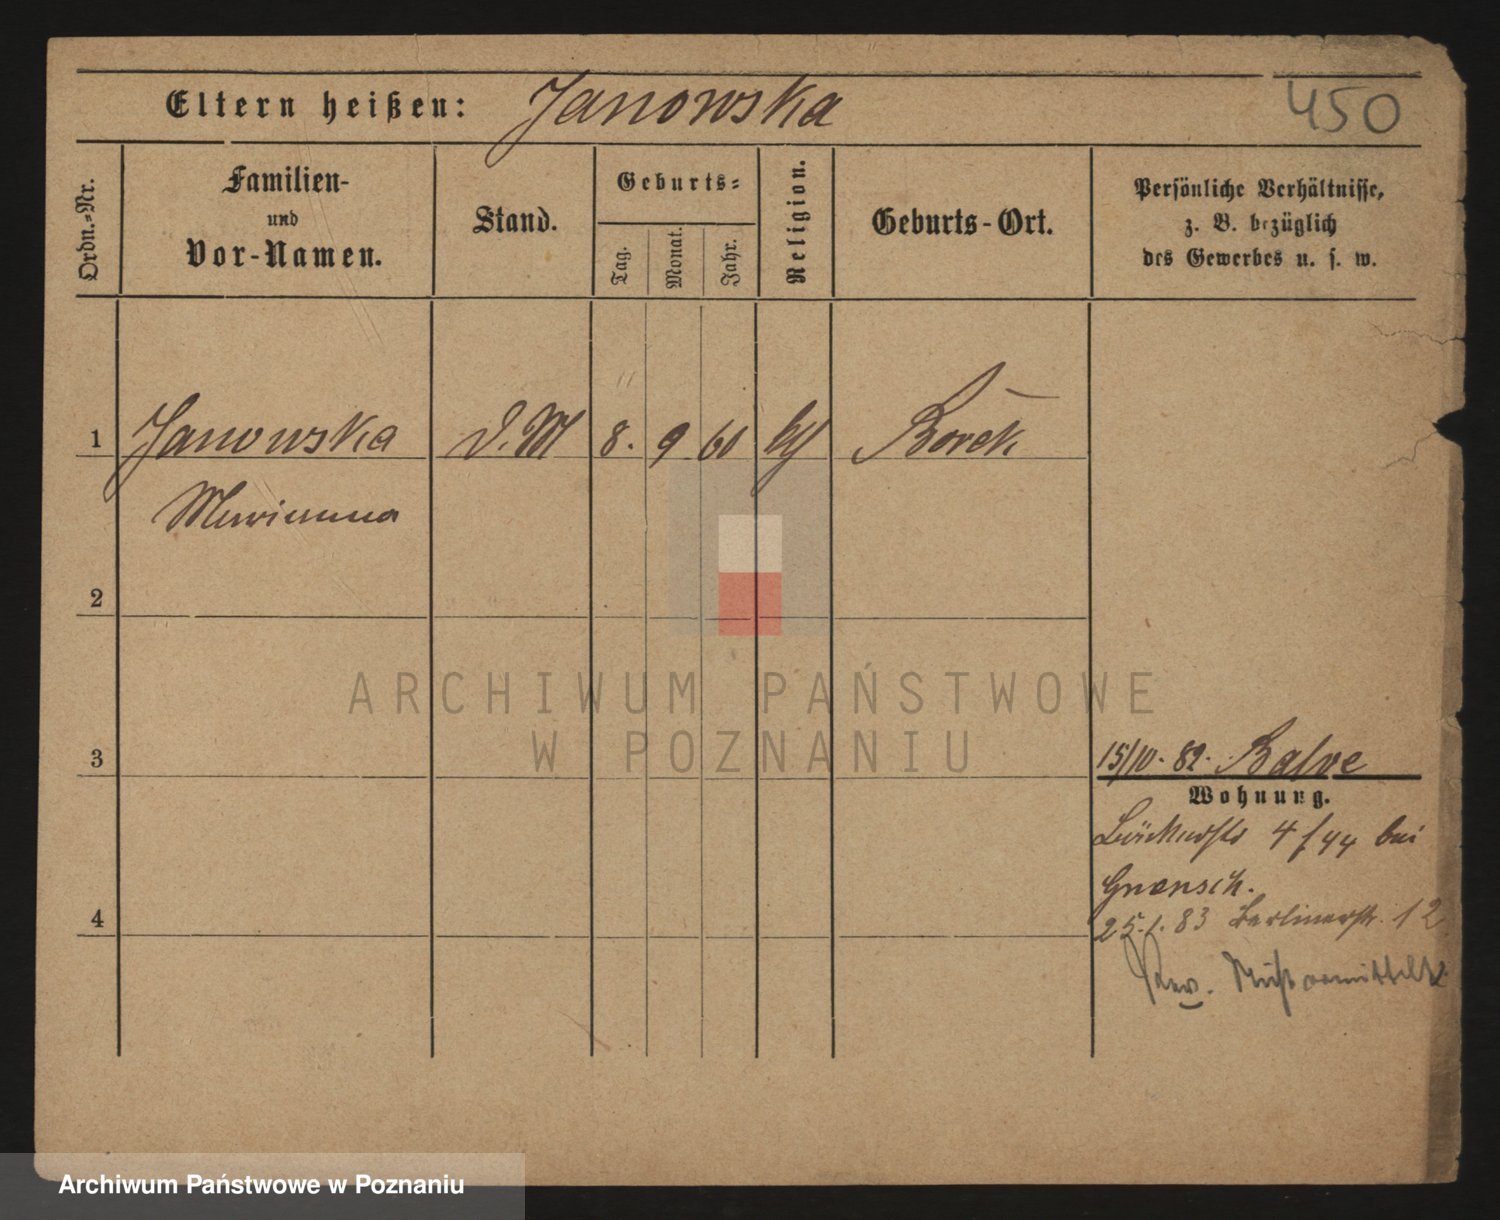 Eltern heißen: Janowska
450
Ordn.=Nr.
Familien-
und
Vor-Namen.
Stand.
Geburts=
Tag.
Monat.
Jahr.
Religion.
Geburts-Ort.
Persönliche Verhältnisse,
z. B. bezüglich
des Gewerbes u. s. w.
1 Janowska D.M 8. 9 60 kt Borek
Marianna
2
ARCHIWUM PAŃSTWOWE
W POZNANIU
3
15/10. 82.
Wohnung.
4 bei
4
25.1.83 Berlinerstr. 12
Archiwum Państwowe w Poznaniu